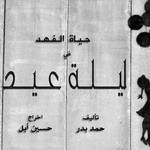 حياة الفهد
في
ليلة عيد
تأليف
حمد بدر
اخراج
حسين أبل